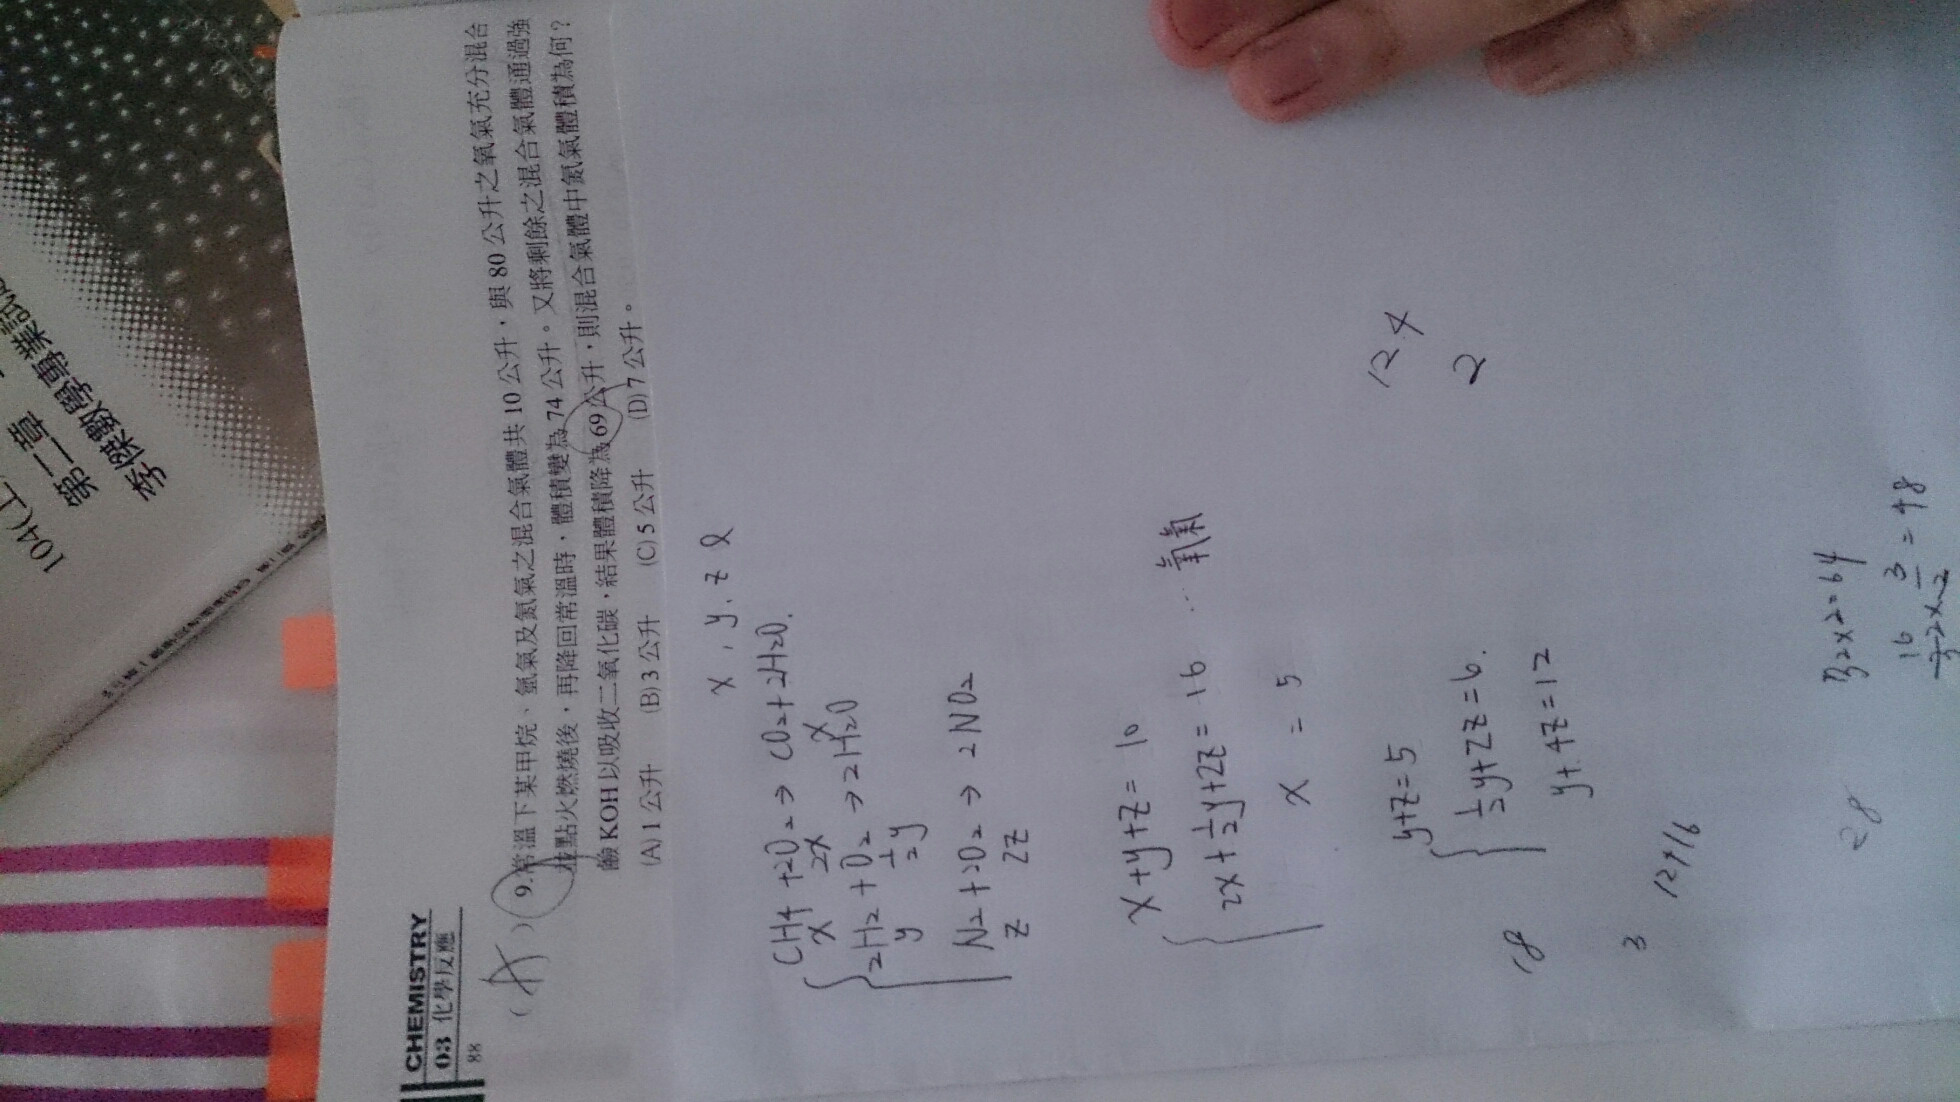 104(上
第二章
李傑數學專業試
CHEMISTRY
03 化學反應
88
(A) 9.常溫下某甲烷、氫氣及氮氣之混合氣體共10公升,與80公升之氧氣充分混合
並點火燃燒後,再降回常溫時,體積變為74公升。又將剩餘之混合氣體通過強
鹼KOH以吸收二氧化碳,結果體積降為69公升,則混合氣體中氮氣體積為何?
(A)1公升 (B)3公升 (C)5公升 (D)7公升。
x , y , z l
CH4 + 2O2 → CO2 + 2H2O.
x 2x x
2H2 + O2 → 2H2O
y ½y
N2 + 2O2 → 2NO2
z 2z
x + y + z = 10
2x + ½y + 2z = 16 … 氧氣
x = 5
y + z = 5
½y + 2z = 6.
y + 4z = 12
18
3
12 4
2
32 x 2 = 64
28
= 48